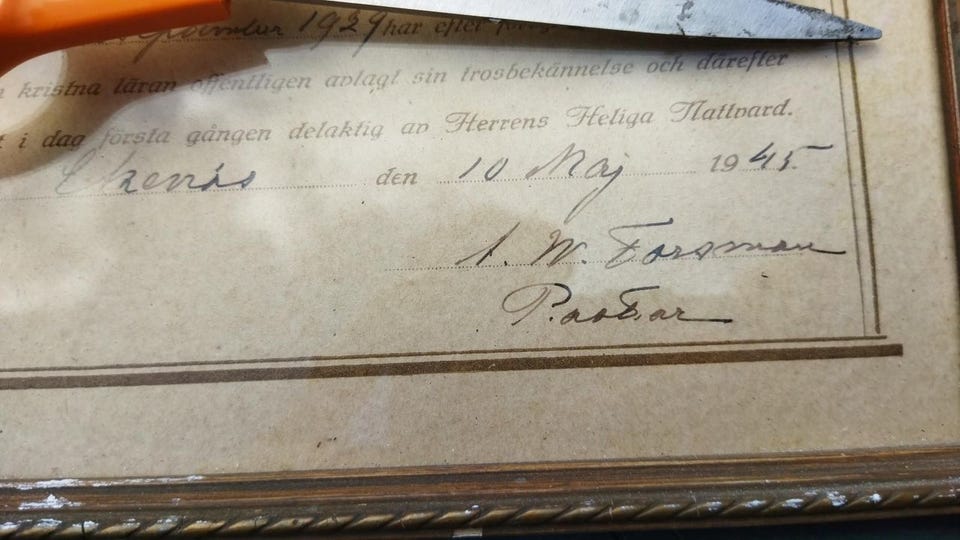 september 1929 har efter
kristna läran offentligen avlagt sin trosbekännelse och därefter
i dag första gången delaktig av Herrens Heliga Nattvard.
Ekenäs den 10 Maj 1945.
W. Forsman
Pastor